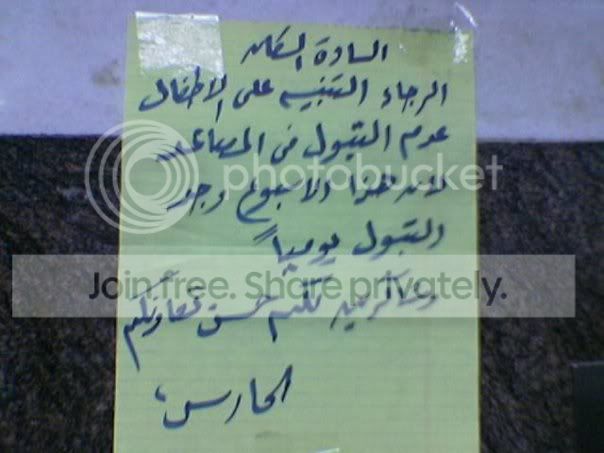 السادة السكان
الرجاء التنبيه على الاطفال
عدم التبول في المصاعد
لانه هذا الاسبوع وجد
التبول يومياً
وشاكرين لكم حسن تعاونكم
الحارس،
photobucket
Join free. Share privately.